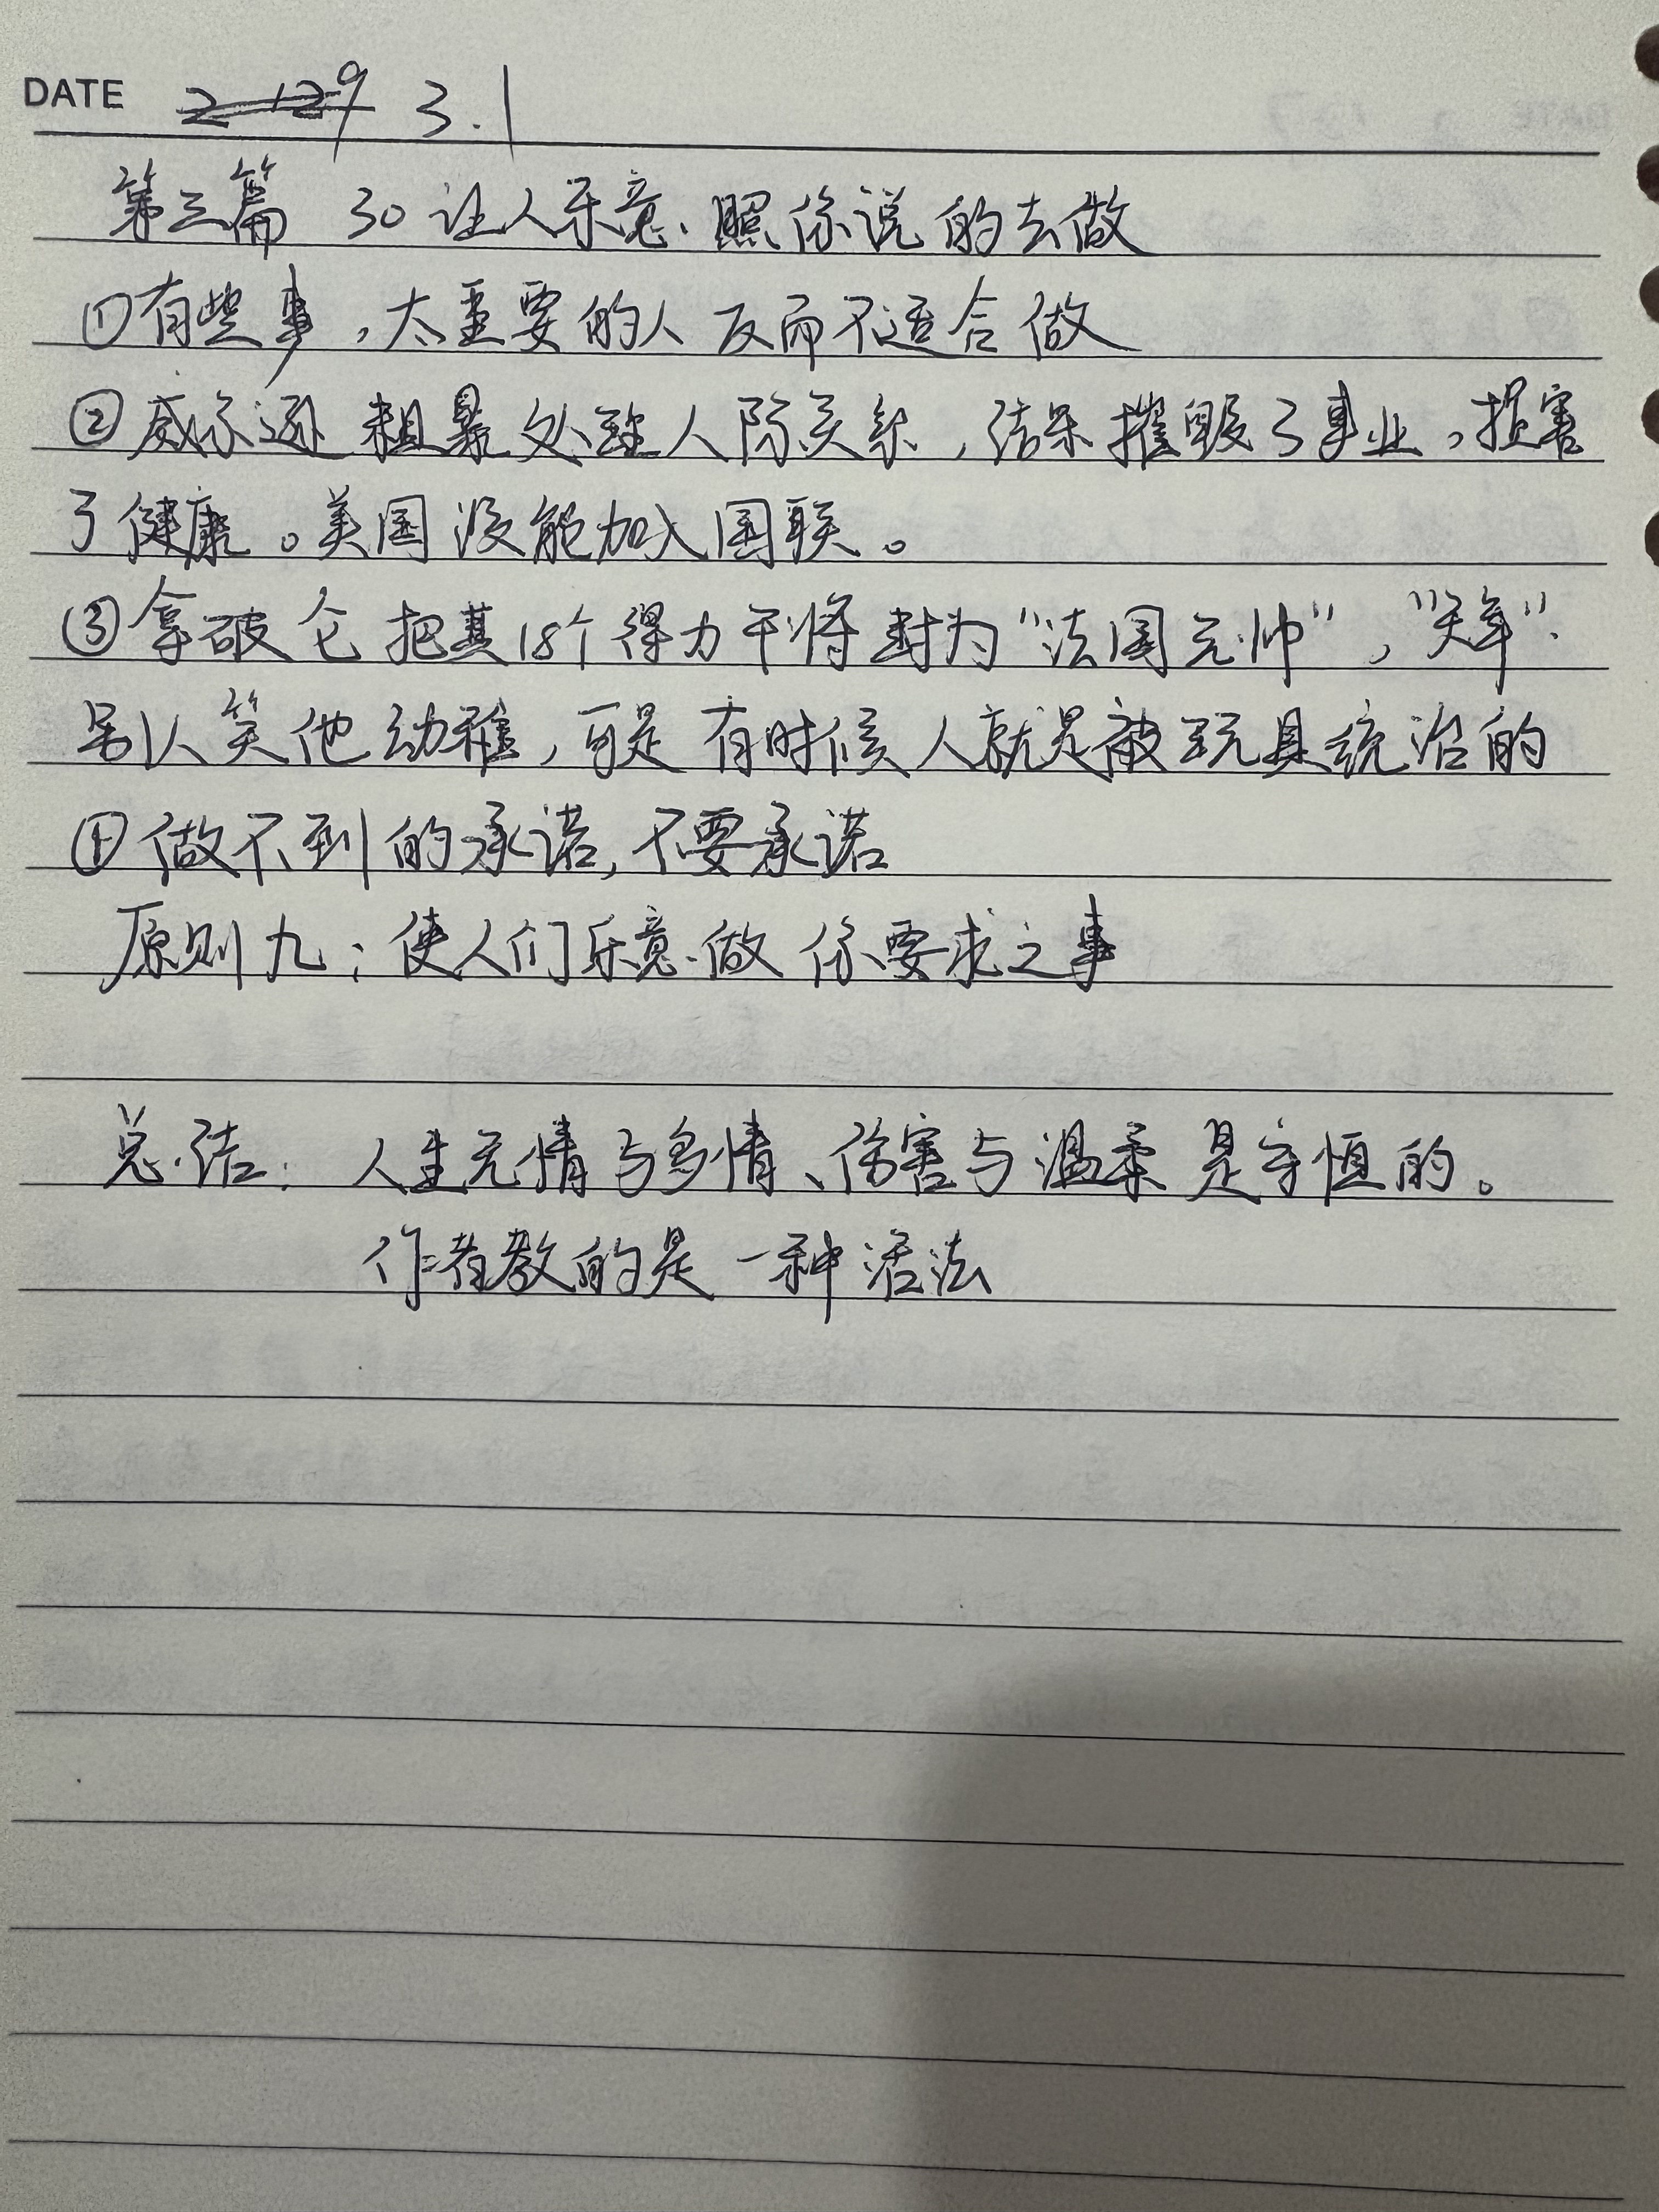 DATE 3.1
第三篇 30 让人乐意照你说的去做
①有些事,太重要的人反而不适合做
②威尔逊粗暴处理人际关系,结果摧毁了事业,损害
了健康。美国没能加入国联。
③拿破仑把其18个得力干将封为“法国元帅”,“大军”
别人笑他幼稚,可是有时候人就是被玩具统治的
④做不到的承诺,不要承诺
原则九:使人们乐意做你要求之事
总结:人生无情与多情、伤害与温柔是守恒的。
作者教的是一种活法